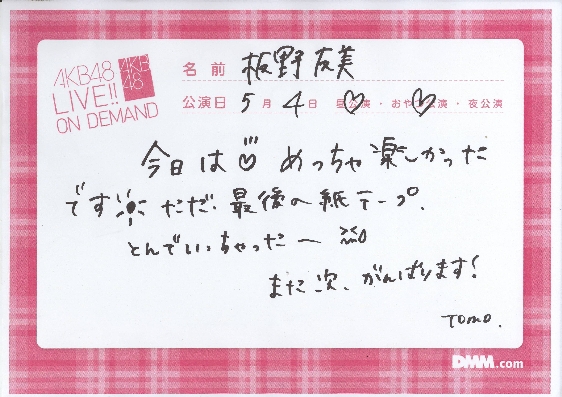 AKB48
LIVE!!
ON DEMAND
AKB
48
名前 板野友美
公演日 5月4日 昼公演・おやつ公演・夜公演
今日は♡めっちゃ楽しかった
です ただ、最後の紙テープ、
とんでいっちゃったー
また次、がんばります!
Tomo.
DMM.com